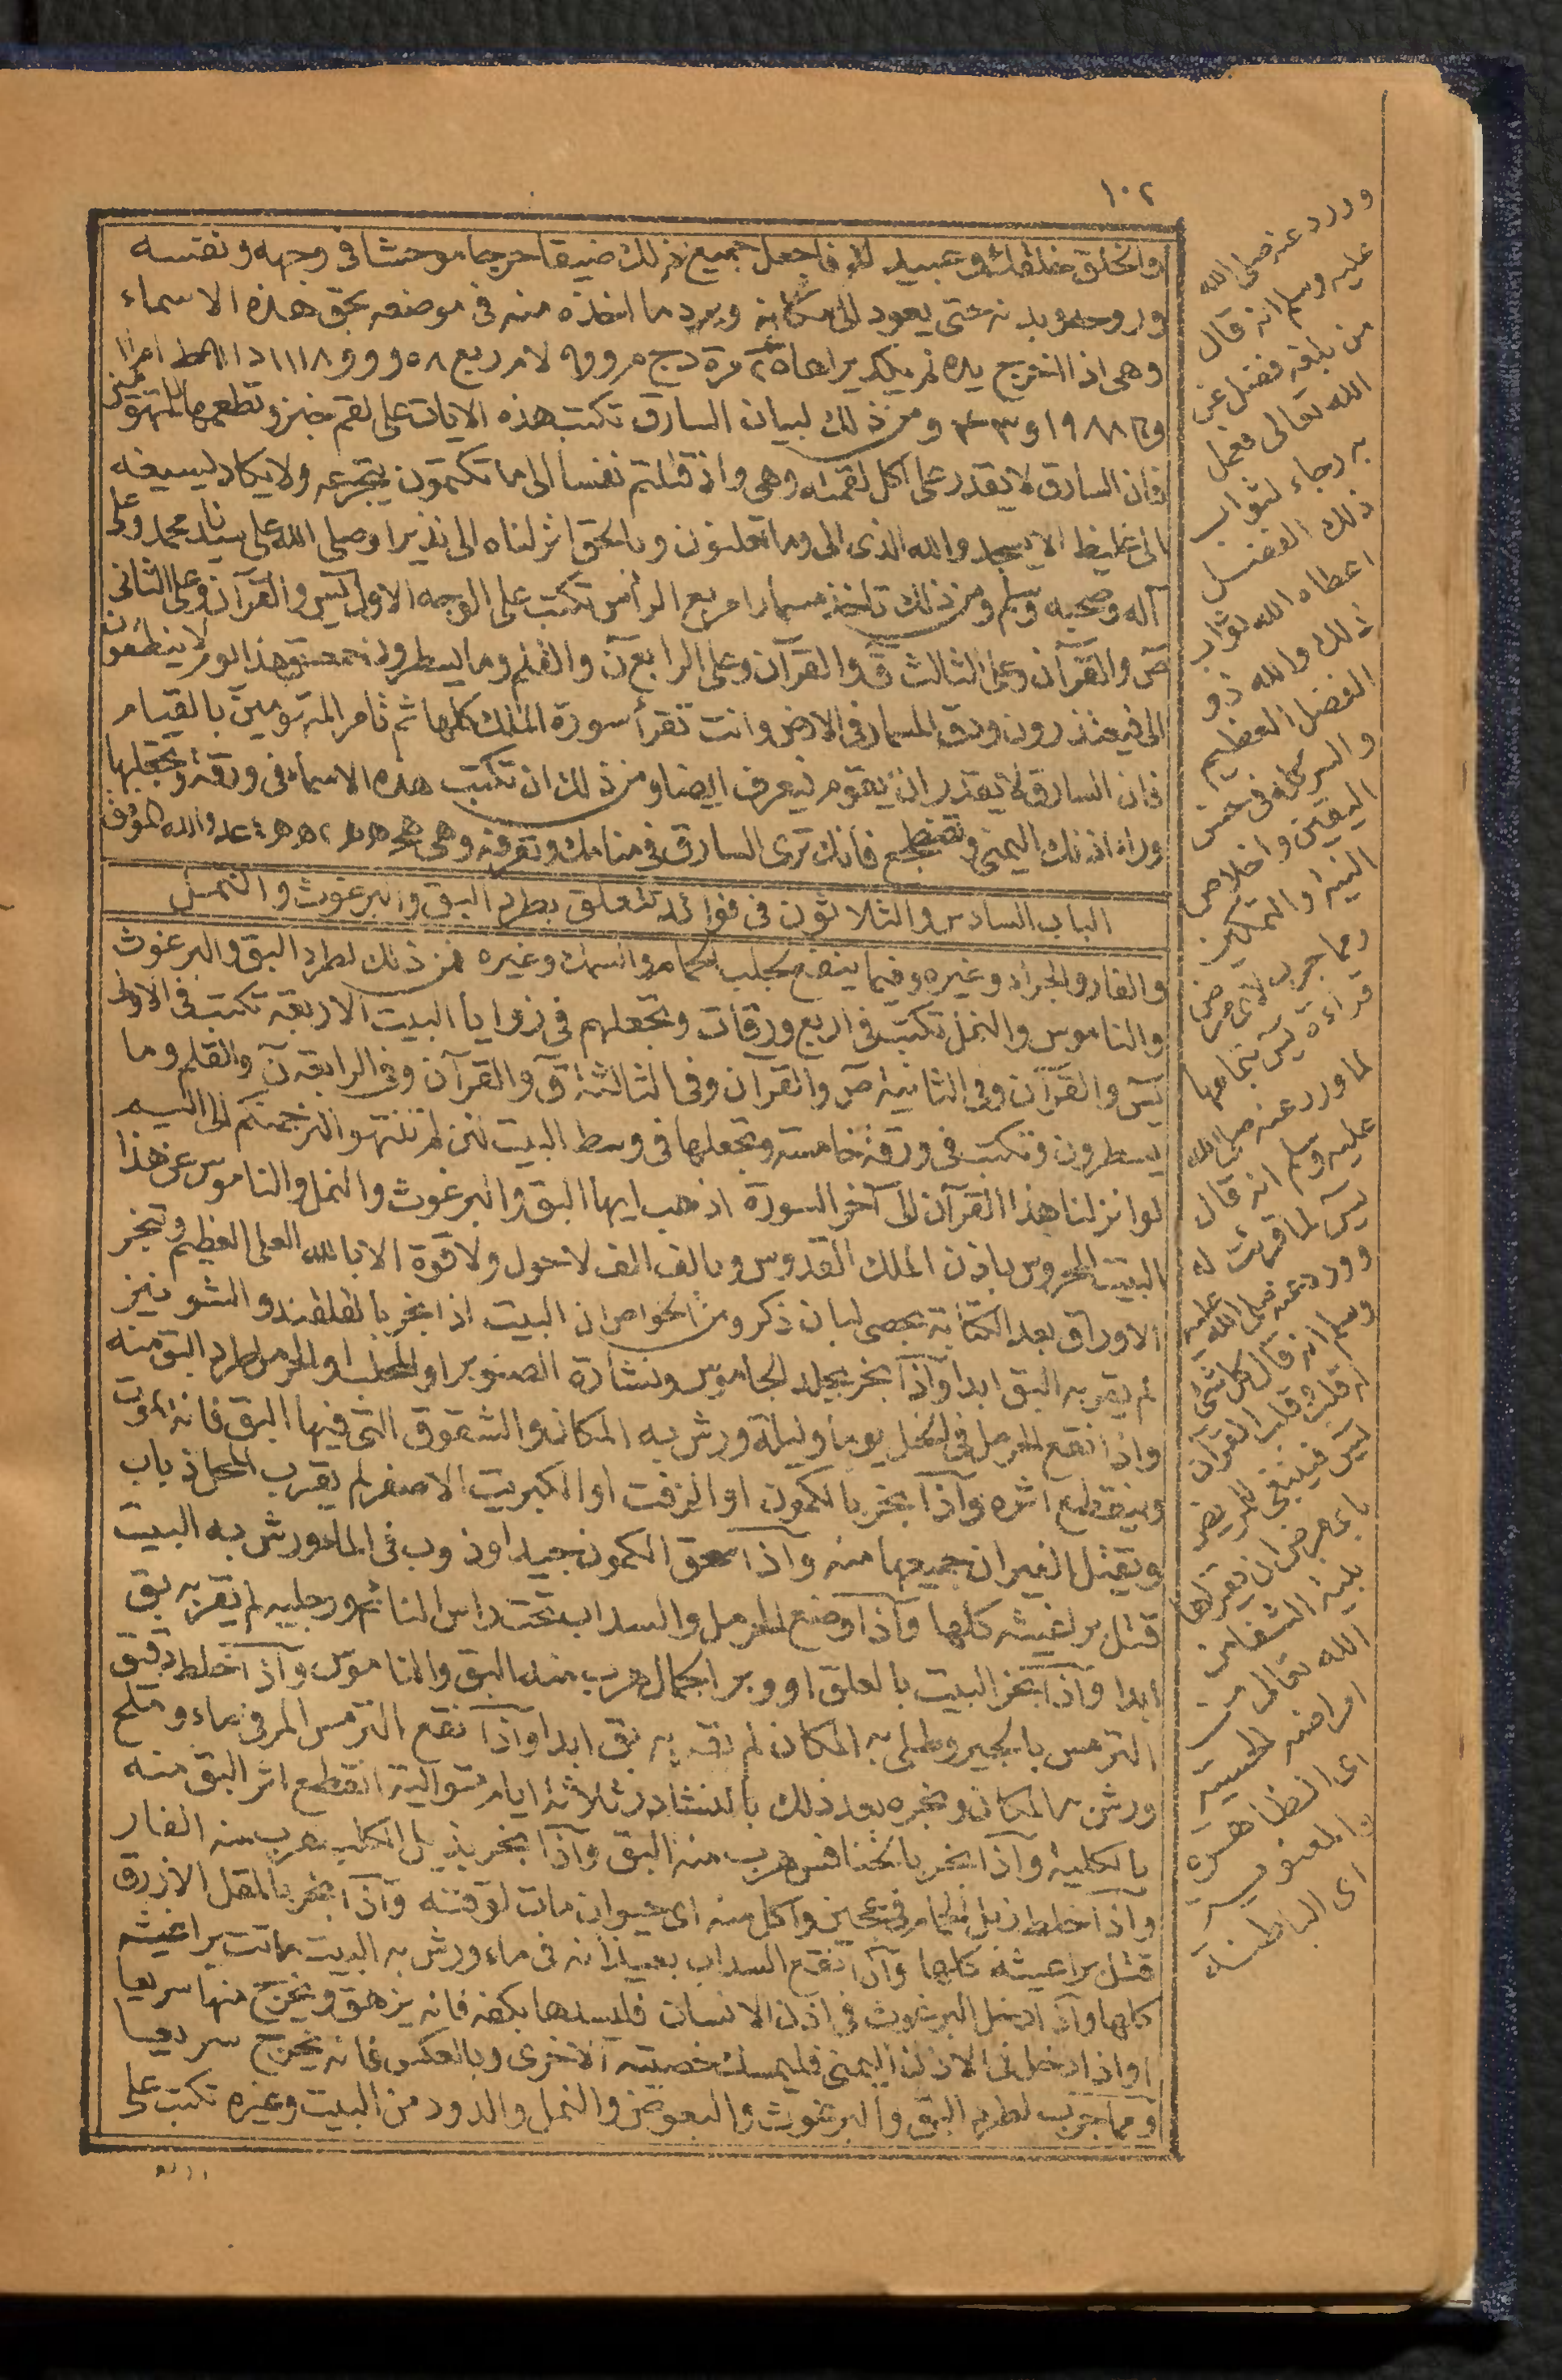 ١٠٢
والخلق خلقك وعبيدك فاجعل جميع ذلك ضيقا حرجا موحشا فى وجهه ونفسه
وروحه وبدنه حتى يعود الى مكانه ويرد ما اخذه منه فى موضعه بحق هذه الاسماء
وهى اذا اخرج يده لم يكد يراها
ومن ذلك لبيان السارق تكتب هذه الايات على لقم خبز وتطعمها للمتهومين
فان السارق لا يقدر على اكل لقمته وهى واذ قتلتم نفسا الى ما تكتمون يتجرعه ولا يكاد يسيغه
الى غليظ الا يسجدوا لله الذى الى وما تعلنون وبالحق انزلناه الى نذيرا وصلى الله على سيدنا محمد وعلى
آله وصحبه وسلم ومن ذلك تأخذ مسمارا مربع الرأس تكتب على الوجه الاول يس والقرآن وعلى الثانى
ص والقرآن وعلى الثالث ق والقرآن وعلى الرابع ن والقلم وما يسطرون هذا يوم لا ينطقون
الى فيعتذرون ودق المسمار فى الارض وانت تقرأ سورة الملك كلها ثم تأمر المتهومين بالقيام
فان السارق لا يقدر ان يقوم فيعرف ايضا ومن ذلك ان تكتب هذه الاسماء فى ورقة وتجعلها
وراء اذنك اليمنى وتضطجع فانك ترى السارق فى منامك وتعرفه وهى
الباب السادس والثلاثون فى فوائد تتعلق بطرد البق والبرغوث والنمل
والفار والجراد وغيره وفيما ينفع لجلب الحمام والسمك وغيره فمن ذلك لطرد البق والبرغوث
والناموس والنمل تكتب فى اربع ورقات وتجعلهم فى زوايا البيت الاربعة تكتب فى الاولى
يس والقرآن وفى الثانية ص والقرآن وفى الثالثة ق والقرآن وفى الرابعة ن والقلم وما
يسطرون وتكتب فى ورقة خامسة وتجعلها فى وسط البيت لئن لم تنتهوا لنرجمنكم الى اليم
لو انزلنا هذا القرآن الى آخر السورة اذهب ايها البق والبرغوث والنمل والناموس عن هذا
البيت المحروس باذن الملك القدوس وبالف الف لا حول ولا قوة الا بالله العلى العظيم وتبخر
الاوراق بعد الكتابة بحصى لبان ذكر ومن الخواص ان البيت اذا بخر بالقلقند والشونيز
لم يقربه البق ابدا واذا بخر بجلد الجاموس ونشارة الصنوبر او المحلب او الحرمل طرد البق منه
واذا نقع الحرمل فى الخل يوما وليلة ورش به المكان والشقوق التى فيها البق فانه يموت
وينقطع اثره واذا بخر بالكمون او الزفت او الكبريت الاصفر لم يقرب المحل ذباب
ويقتل الفيران جميعها منه واذا سحق الكمون جيدا وذوب فى الماء ورش به البيت
قتل براغيثه كلها واذا وضع الحرمل والسداب تحت راس النائم ورجليه لم يقربه بق
ابدا واذا بخر البيت بالعلق او وبر الجمال هرب منه البق والناموس واذا خلط دقيق
الترمس بالجير وطلى به المكان لم يقربه بق ابدا واذا نقع الترمس المر فى ماء وملح
ورش به المكان وبخره بعد ذلك بالنشادر ثلاثة ايام متوالية انقطع اثر البق منه
بالكلية واذا بخر بالخنافس هرب منه البق واذا بخر بذيل الكلب هرب منه الفار
واذا خلط زبل الحمام فى عجين واكل منه اى حيوان مات لوقته واذا بخر بالمقل الازرق
قتل براغيثه كلها واذا نقع السداب بعيدانه فى ماء ورش به البيت ماتت براغيثه
كلها واذا دخل البرغوث فى اذن الانسان فليسدها بكفه فانه يزهق ويخرج منها سريعا
واذا دخل فى الاذن اليمنى فليمسك خصيته الاخرى وبالعكس فانه يخرج سريعا
ومما جرب لطرد البق والبرغوث والبعوض والنمل والدود من البيت وغيره تكتب على
وورد عنه صلى الله
عليه وسلم انه قال
من بلغه فضل عن
الله تعالى فعمل
به رجاء لثواب
ذلك الفضل
اعطاه الله ثواب
ذلك والله ذو
الفضل العظيم
والسر كله فى حسن
اليقين واخلاص
النية والتمكين
ومما جرب لاى مرض
قراءة يس بتمامها
لما ورد عنه صلى الله
عليه وسلم انه قال
يس لما قرئت له
وورد عنه صلى الله عليه
وسلم انه قال كل شئ
له قلب وقلب القرآن
يس فينبغى للمريض
باى مرض ان يقرأها
بنية الشفاء من
الله تعالى من
امراضه الحسية
اى الظاهرة
والمعنوية
اى الباطنة